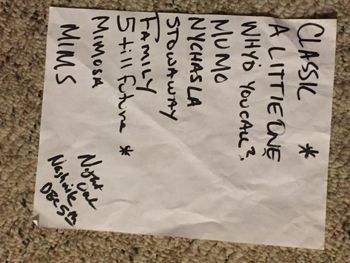 CLASSIC *
A LITTLE ONE
WHY'D YOU CALL?
MUMD
NYCHASLA
STOWAWAY
FAMILY
Still future *
MIMOSA
MIMS
Night
Owl
Nashville